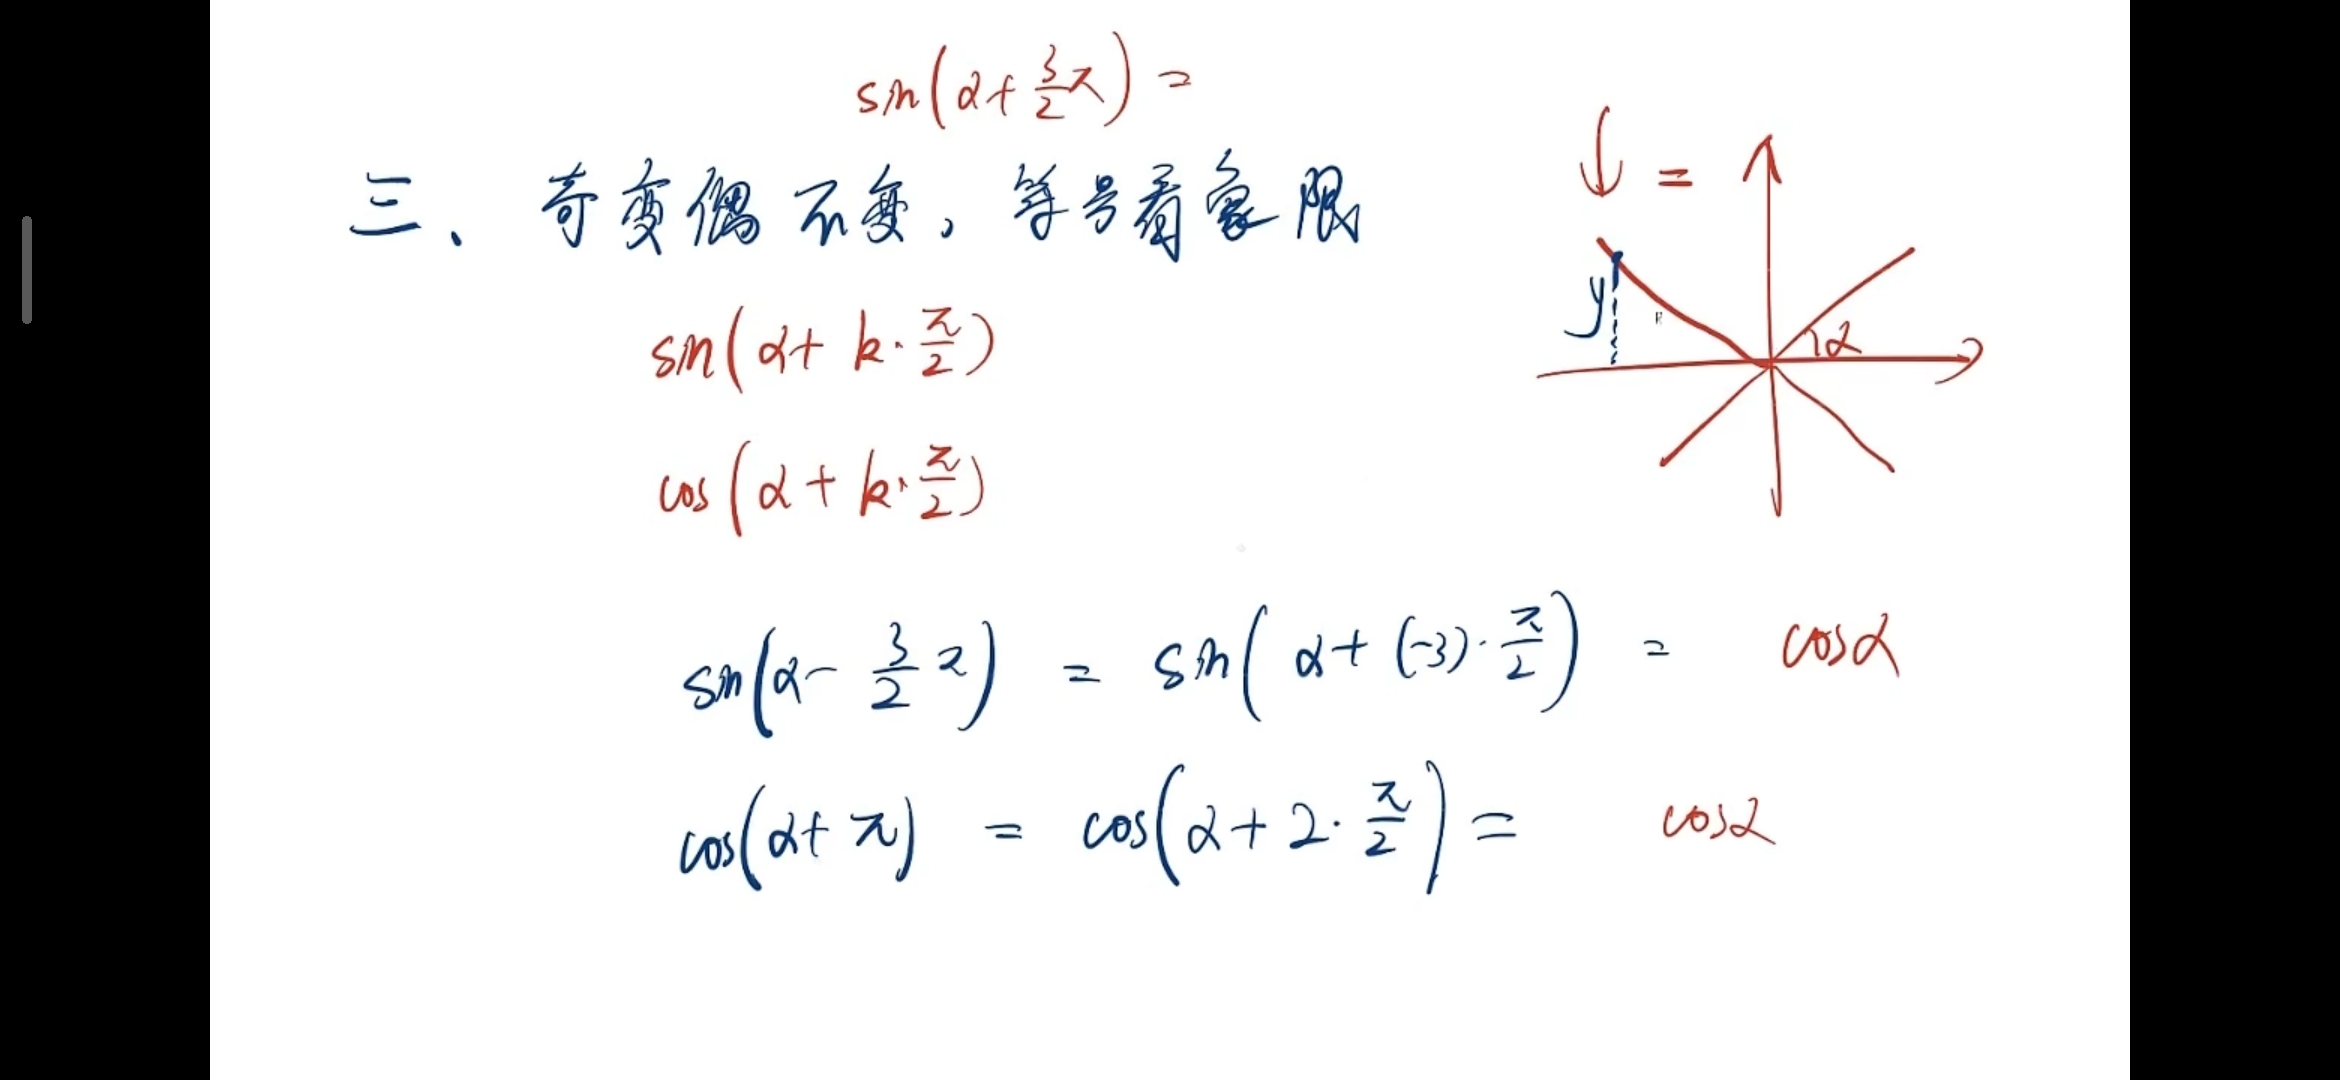 sin(α+3/2π)=
三、奇变偶不变，符号看象限
sin(α+k·π/2)
cos(α+k·π/2)
sin(α-3/2π) = sin(α+(-3)·π/2) = cosα
cos(α+π) = cos(α+2·π/2) = cosα
二
y
α